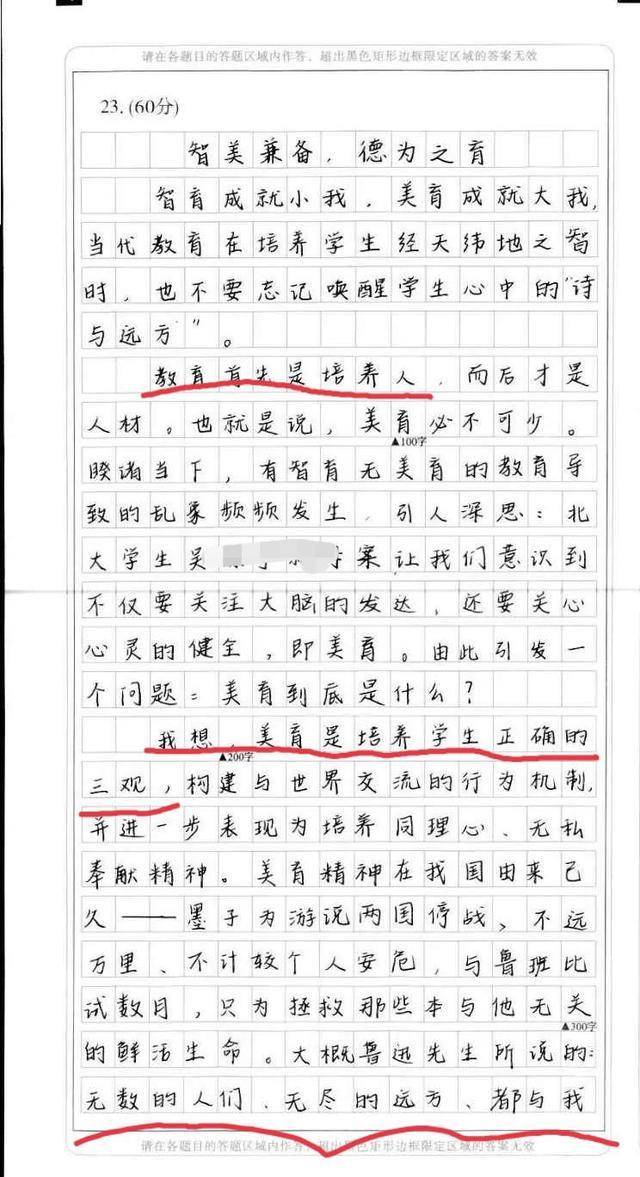 请在各题目的答题区域内作答，超出黑色矩形边框限定区域的答案无效
23. (60分)
智美兼备，德为之育
智育成就小我，美育成就大我，
当代教育在培养学生经天纬地之智
时，也不要忘记唤醒学生心中的“诗
与远方”。
教育首先是培养人，而后才是
人材。也就是说，美育必不可少。
▲100字
睽诸当下，有智育无美育的教育导
致的乱象频频发生，引人深思：北
大学生吴 案让我们意识到
不仅要关注大脑的发达，还要关心
心灵的健全，即美育。由此引发一
个问题：美育到底是什么？
我想，美育是培养学生正确的
▲200字
三观，构建与世界交流的行为机制，
并进一步表现为培养同理心、无私
奉献精神。美育精神在我国由来已
久——墨子为游说两国停战、不远
万里、不计较个人安危，与鲁班比
试数月，只为拯救那些本与他无关
▲300字
的鲜活生命。大概鲁迅先生所说的：
无数的人们、无尽的远方、都与我
请在各题目的答题区域内作答，超出黑色矩形边框限定区域的答案无效